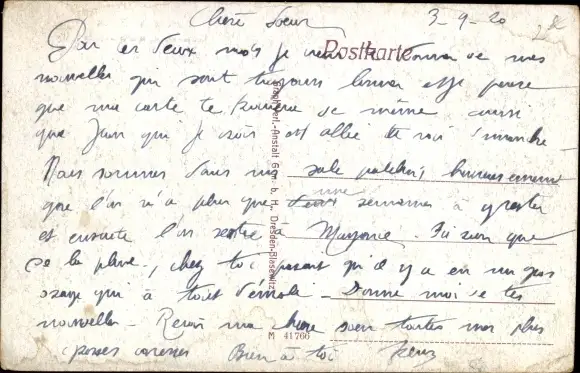 Chère Soeur 3-9-20
Par ces deux mots je viens te donner de mes
Postkarte
nouvelles qui sont toujours bonnes et je pense
que ma carte te trouvera de même aussi
que Jean qui je crois est allé te voir dimanche
Nous sommes dans un sale patelin, heureusement
que l'on n'a plus que une semaines à y rester
et ensuite l'on rentre à Mayence. Ici rien que
de la pluie, chez toi parait qu'il y a eu un gros
orage qui à tout démoli. Donne moi de tes
nouvelles. Reçois ma chère soeur toutes mes plus
grosses caresses Bien à toi
Graph. Verl.-Anstalt G. m. b. H., Dresden-Blasewitz
M 41766